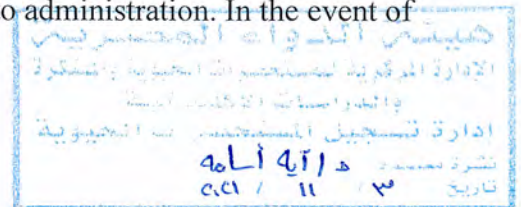 o administration. In the event of
هيئة الدواء المصرية
الإدارة المركزية للمستحضرات الحيوية والمبتكرة
والدراسات الإكلينيكية
إدارة تسجيل المستحضرات الحيوية
نشرة معتمدة د/آية أسامة
تاريخ ٣ / ١١ / ٢٠٢١